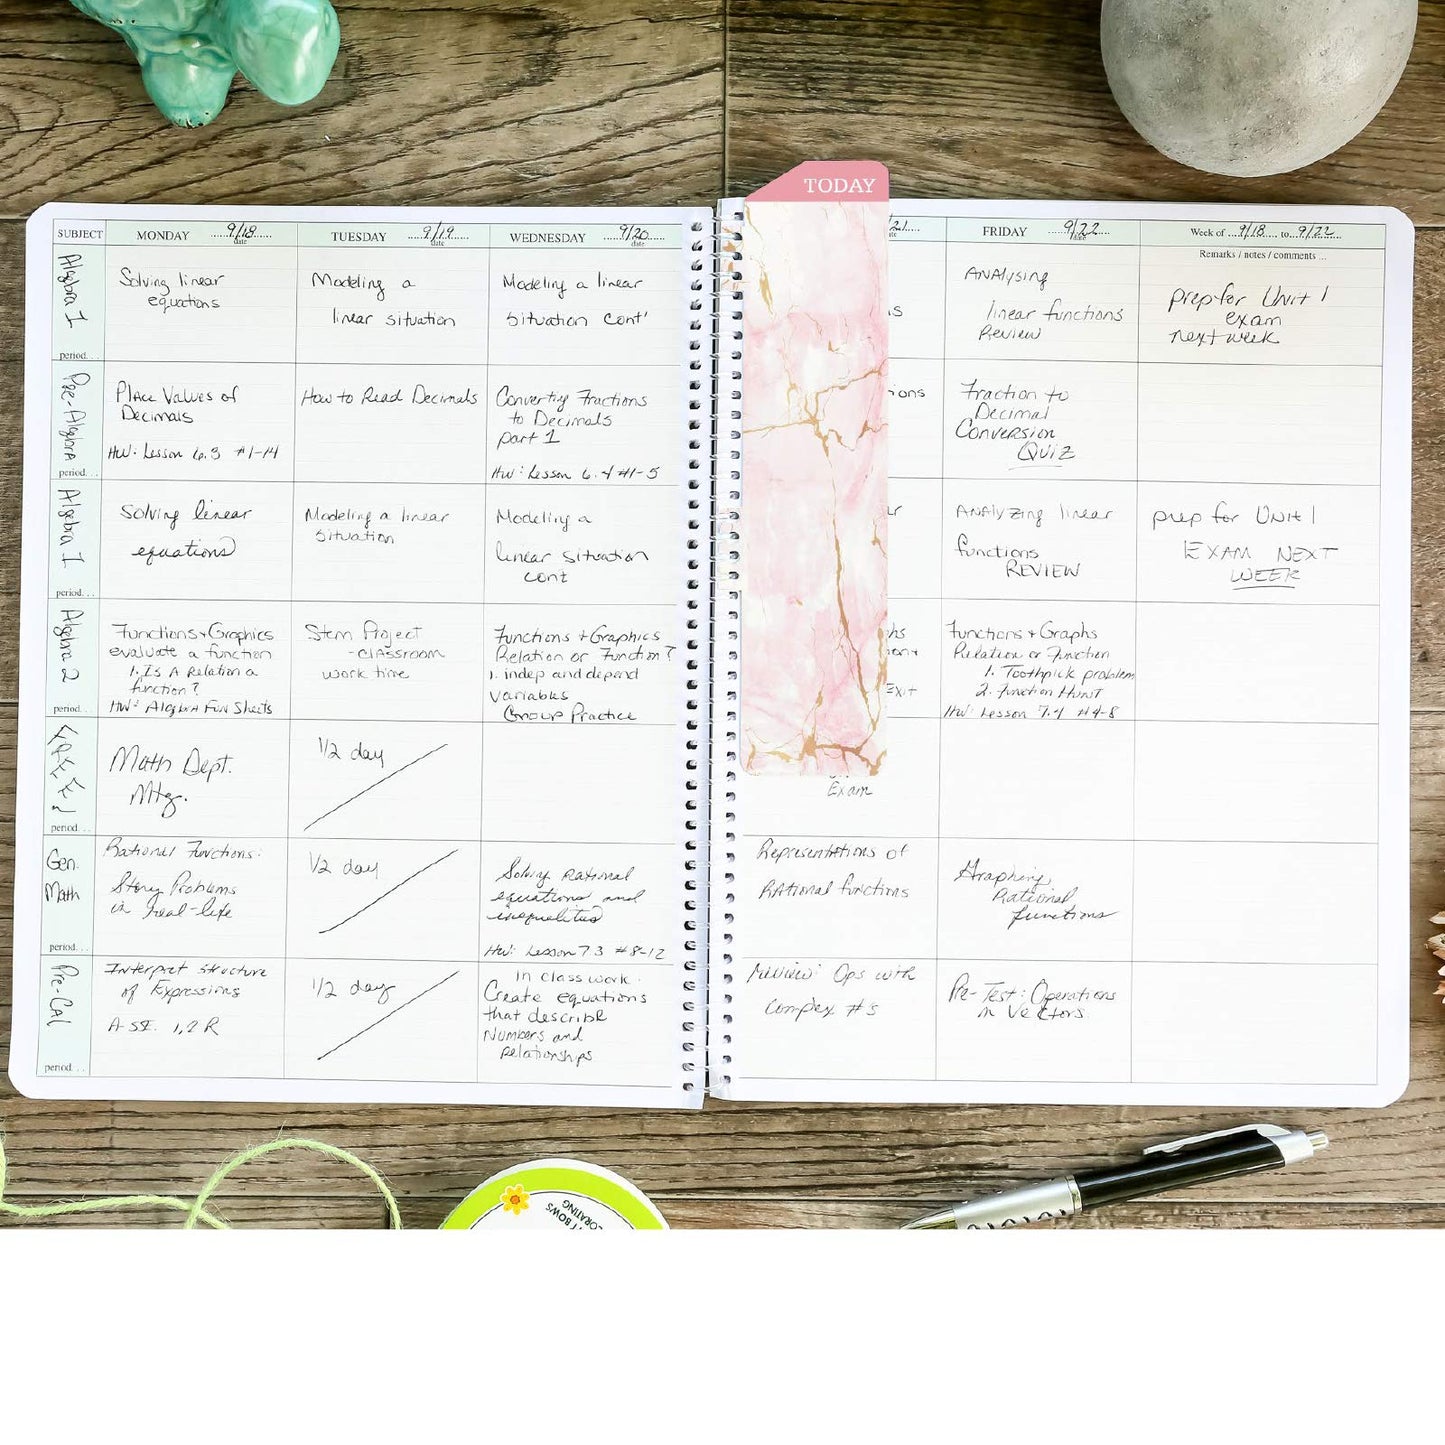 TODAY
SUBJECT
MONDAY 9/18
date
TUESDAY 9/19
date
WEDNESDAY 9/20
date
21
FRIDAY 9/22
date
Week of 9/18 to 9/22
Remarks / notes / comments ...
Algebra 1
period...
Solving linear
equations
Modeling a
linear situation
Modeling a linear
situation cont'
ANAlysing
linear functions
Review
prep for Unit 1
exam
next week
Pre-AlgebrA
period...
PlAce Values of
Decimals
HW: Lesson 6.3 #1-14
How to Read Decimals
Converting Fractions
to Decimals
part 1
HW: Lesson 6.4 #1-5
ons
Fraction to
Decimal
Conversion
QUIZ
Algebra 1
period...
Solving linear
equations
Modeling a linear
Situation
Modeling a
linear situation
cont
ANAlyzing linear
functions
REVIEW
prep for UNit 1
EXAM NEXT
WEEK
Algebra 2
period...
Functions + Graphics
evaluate a function
1. Is A Relation a
function?
HW: AlgebrA Fun Sheets
Stem Project
- classroom
work time
Functions + Graphics
Relation or Function?
1. indep and depend
variables
Group Practice
Exit
Functions + Graphs
Relation or Function
1. Toothpick problem
2. Function Hunt
HW: Lesson 7.4 #4-8
period...
Math Dept.
Mtg.
1/2 day
Exam
Gen.
Math
period...
Rational Functions:
Story Problems
in real-life
1/2 day
Solving Rational
equations and
inequalities
HW: Lesson 7.3 #8-12
Representations of
RAtional functions
Graphing
Rational
functions
Pre-CAl
period...
Interpret structure
of Expressions
A-SSE. 1,2 R
1/2 day
in class work:
Create equations
that describe
Numbers and
relationships
Review: Ops with
complex #s
Pre-Test: Operations
in Vectors
BOWS